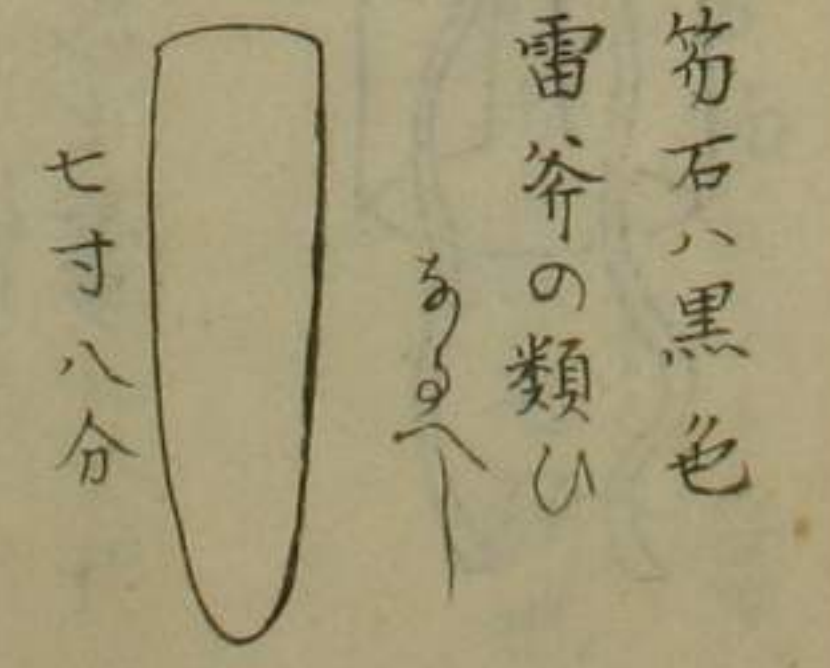 笏石ハ黒色
雷斧の類ひ
なるへし
七寸八分